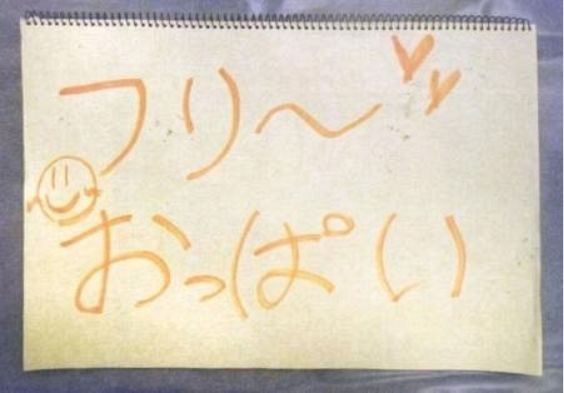 フリ～
おっぱい